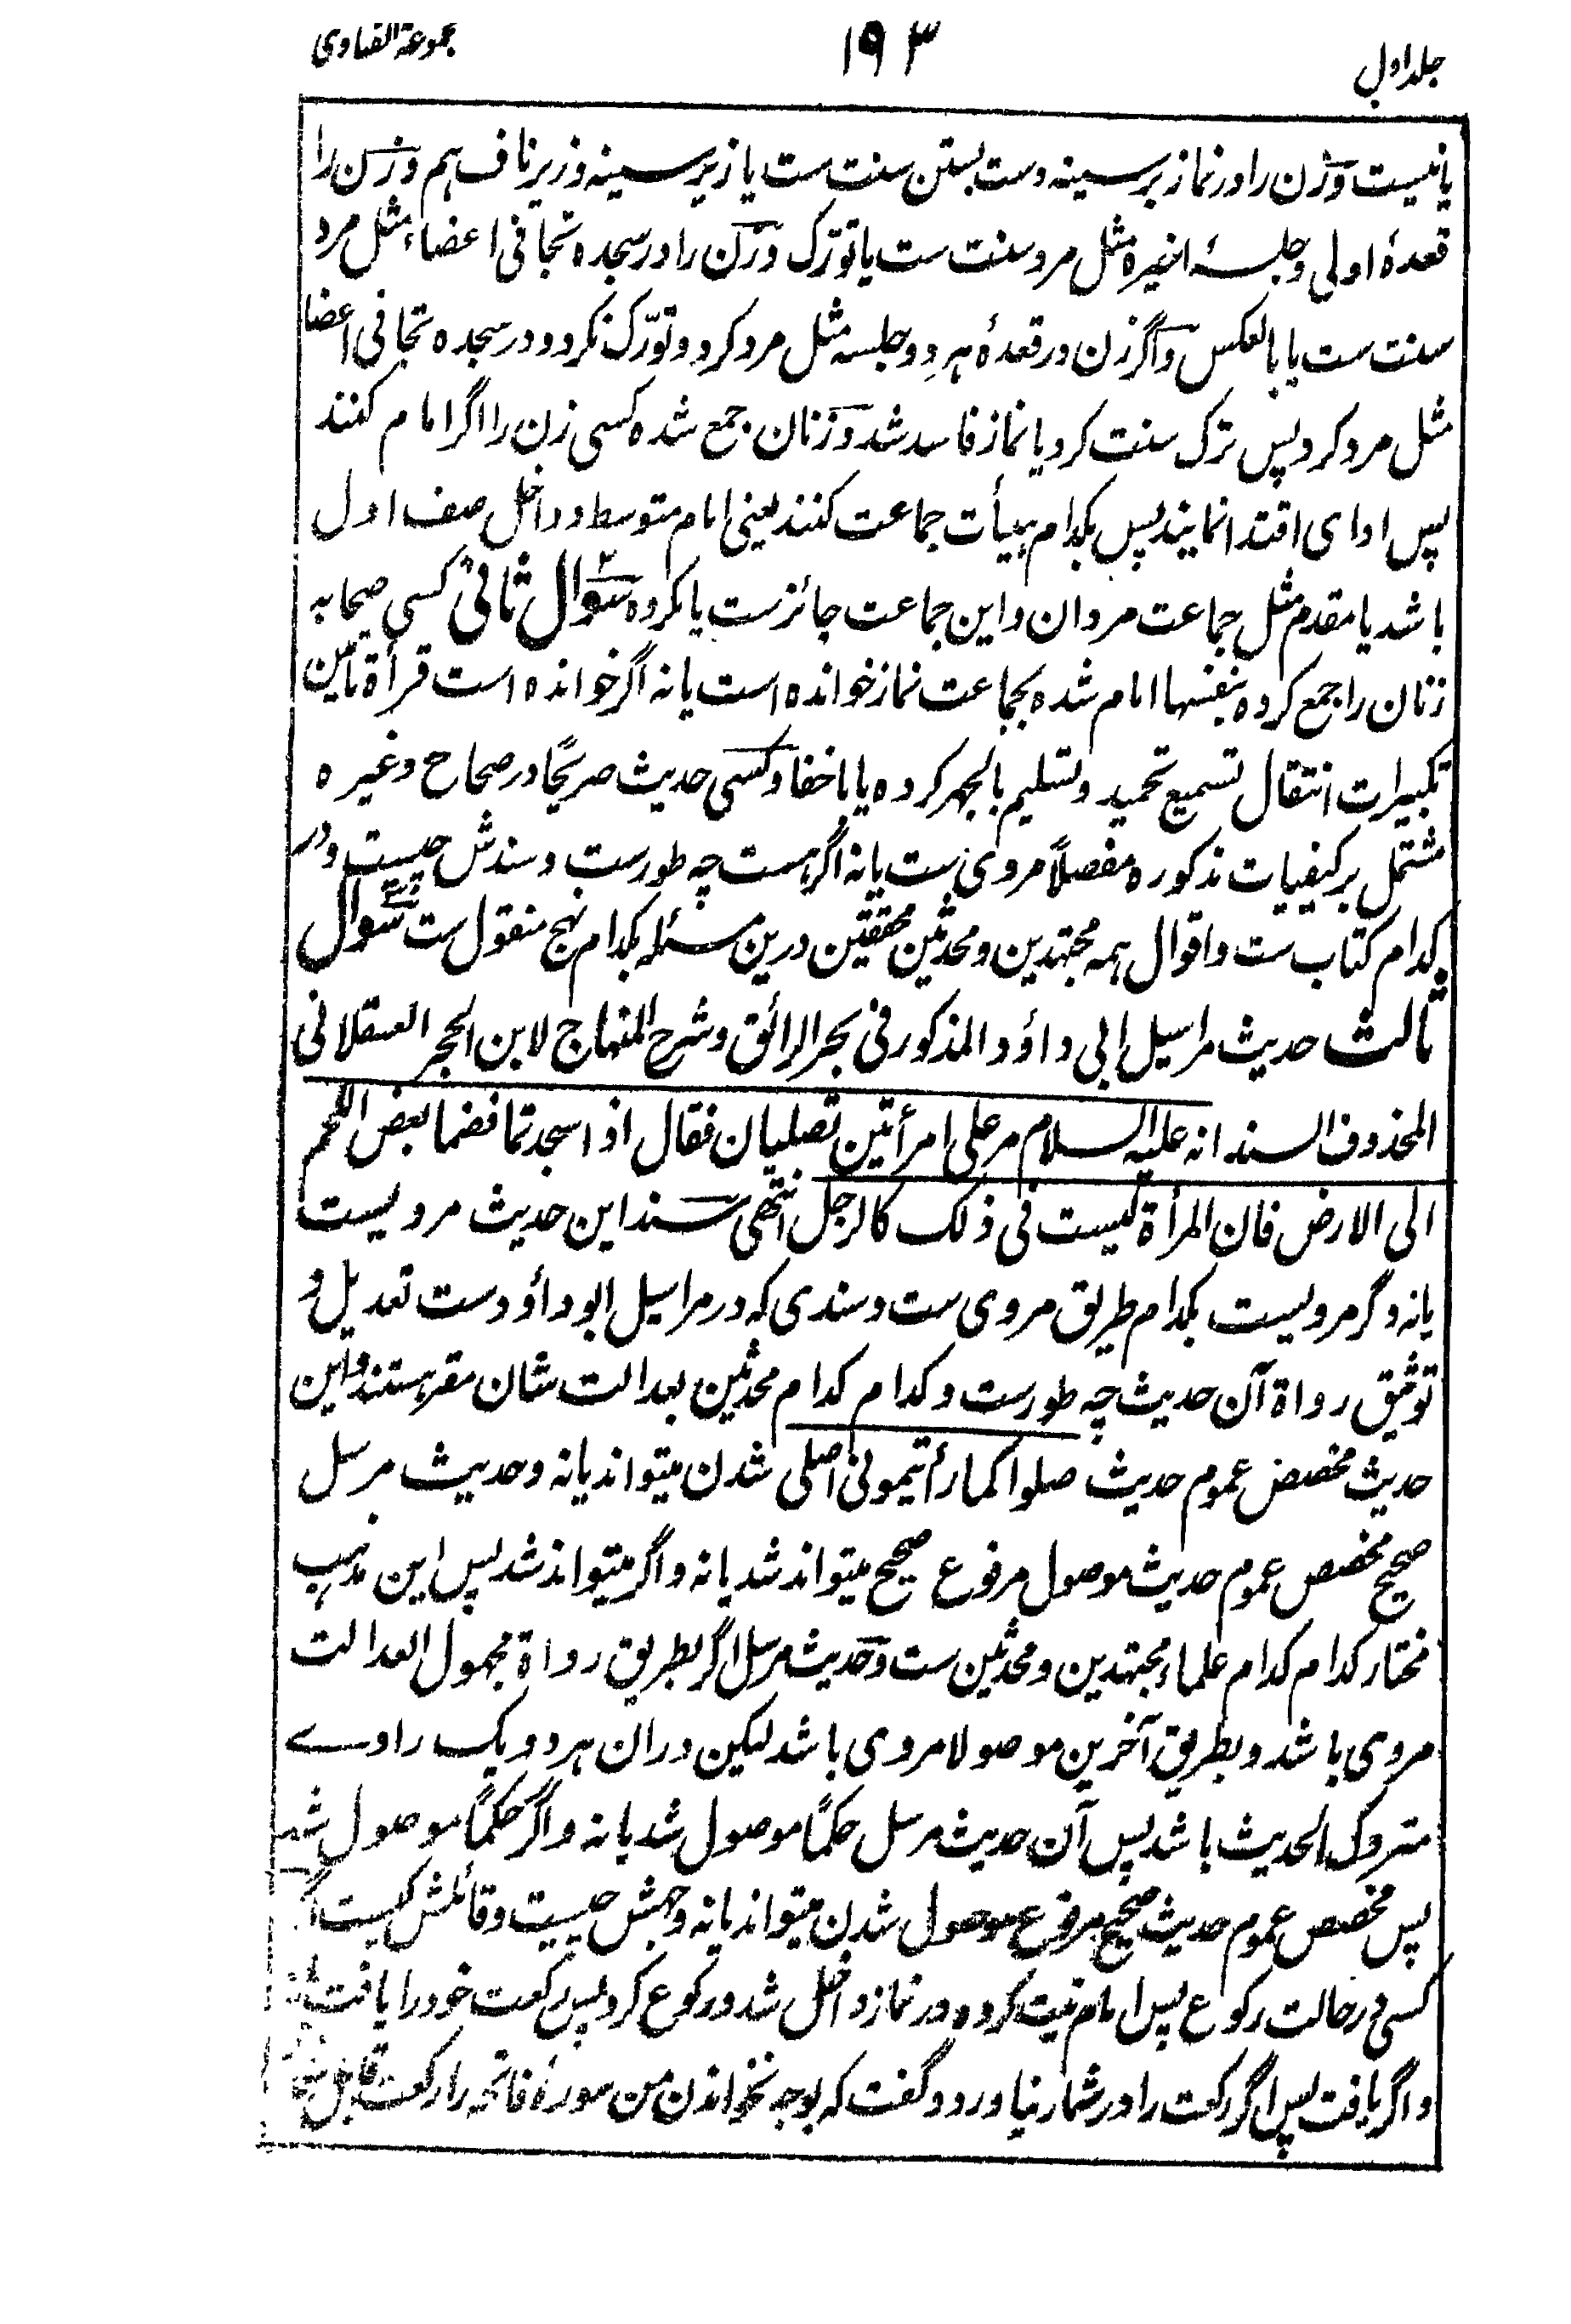 جلد اول
۱۹۳
مجموعة الفتاوی
یا نیست و زن را در نماز بر سینه دست بستن سنت ست یا زیر سینه و زیر ناف هم و زن را
قعدۀ اولی و جلسۀ اخیره مثل مرد سنت ست یا تورّک و زن را در سجده تجافی اعضاء مثل مرد
سنت ست یا بالعکس و اگر زن در قعدۀ هر دو جلسه مثل مرد کرد و تورّک نکرد و در سجده تجافی اعضا
مثل مرد کرد پس ترک سنت کرد یا نماز فاسد شد و زنان جمع شده کسی زن را اگر امام کنند
پس او ای اقتدا نمایند پس بکدام هیأت جماعت کنند یعنی امام متوسط و داخل صف اول
باشد یا مقدم مثل جماعت مردان و این جماعت جائز ست یا مکروه سوال ثانی کسی صحابه
زنان را جمع کرده بنفسها امام شده بجماعت نماز خوانده است یا نه اگر خوانده است قرأة تأمین
تکبیرات انتقال تسمیع تحمید و تسلیم بالجهر کرده یا باخفا و کسی حدیث صریحا در صحاح و غیره
مشتمل بر کیفیات مذکوره مفصلاً مروی ست یا نه اگر هست چه طورست و سندش چیست و در
کدام کتاب ست و اقوال همه مجتهدین و محدثین محققین درین مسئله بکدام نهج منقول ست سوال
ثالث حدیث مراسیل ابی داؤد المذکور فی بحر الرائق و شرح المنهاج لابن الحجر العسقلانی
المحذوف السند انه علیه السلام مر علی امرأتین تصلیان فقال اذا سجدتما فضما بعض اللحم
الی الارض فان المرأة لیست فی ذلک کالرجل انتهی سند این حدیث مرویست
یا نه و گر مرویست بکدام طریق مروی ست و سندی که در مراسیل ابو داؤد ست تعدیل و
توثیق رواة آن حدیث چه طورست و کدام کدام محدثین بعدالت شان مقر هستند و این
حدیث مخصص عموم حدیث صلوا کما رأیتمونی اصلی شدن میتواند یا نه و حدیث مرسل
صحیح مخصص عموم حدیث موصول مرفوع صحیح میتواند شد یا نه و اگر میتواند شد پس این مذهب
مختار کدام کدام علماء مجتهدین و محدثین ست و حدیث مرسل اگر بطریق رواة مجهول العدالت
مروی باشد و بطریق آخرین موصولا مروی باشد لیکن دران هر دو یک راوے
متروک الحدیث باشد پس آن حدیث مرسل حکماً موصول شد یا نه و اگر حکماً موصول شد
پس مخصص عموم حدیث صحیح مرفوع موصول شدن میتواند یا نه وجهش چیست و قائلش کیست اگر
کسی در حالت رکوع پس امام نیت کرده در نماز داخل شد و رکوع کرد پس رکعت خود را یافت
و اگر یافت پس اگر رکعت را در شمار نیاورد و گفت که بوجه نخواندن من سورۀ فاتحه را رکعت قابل